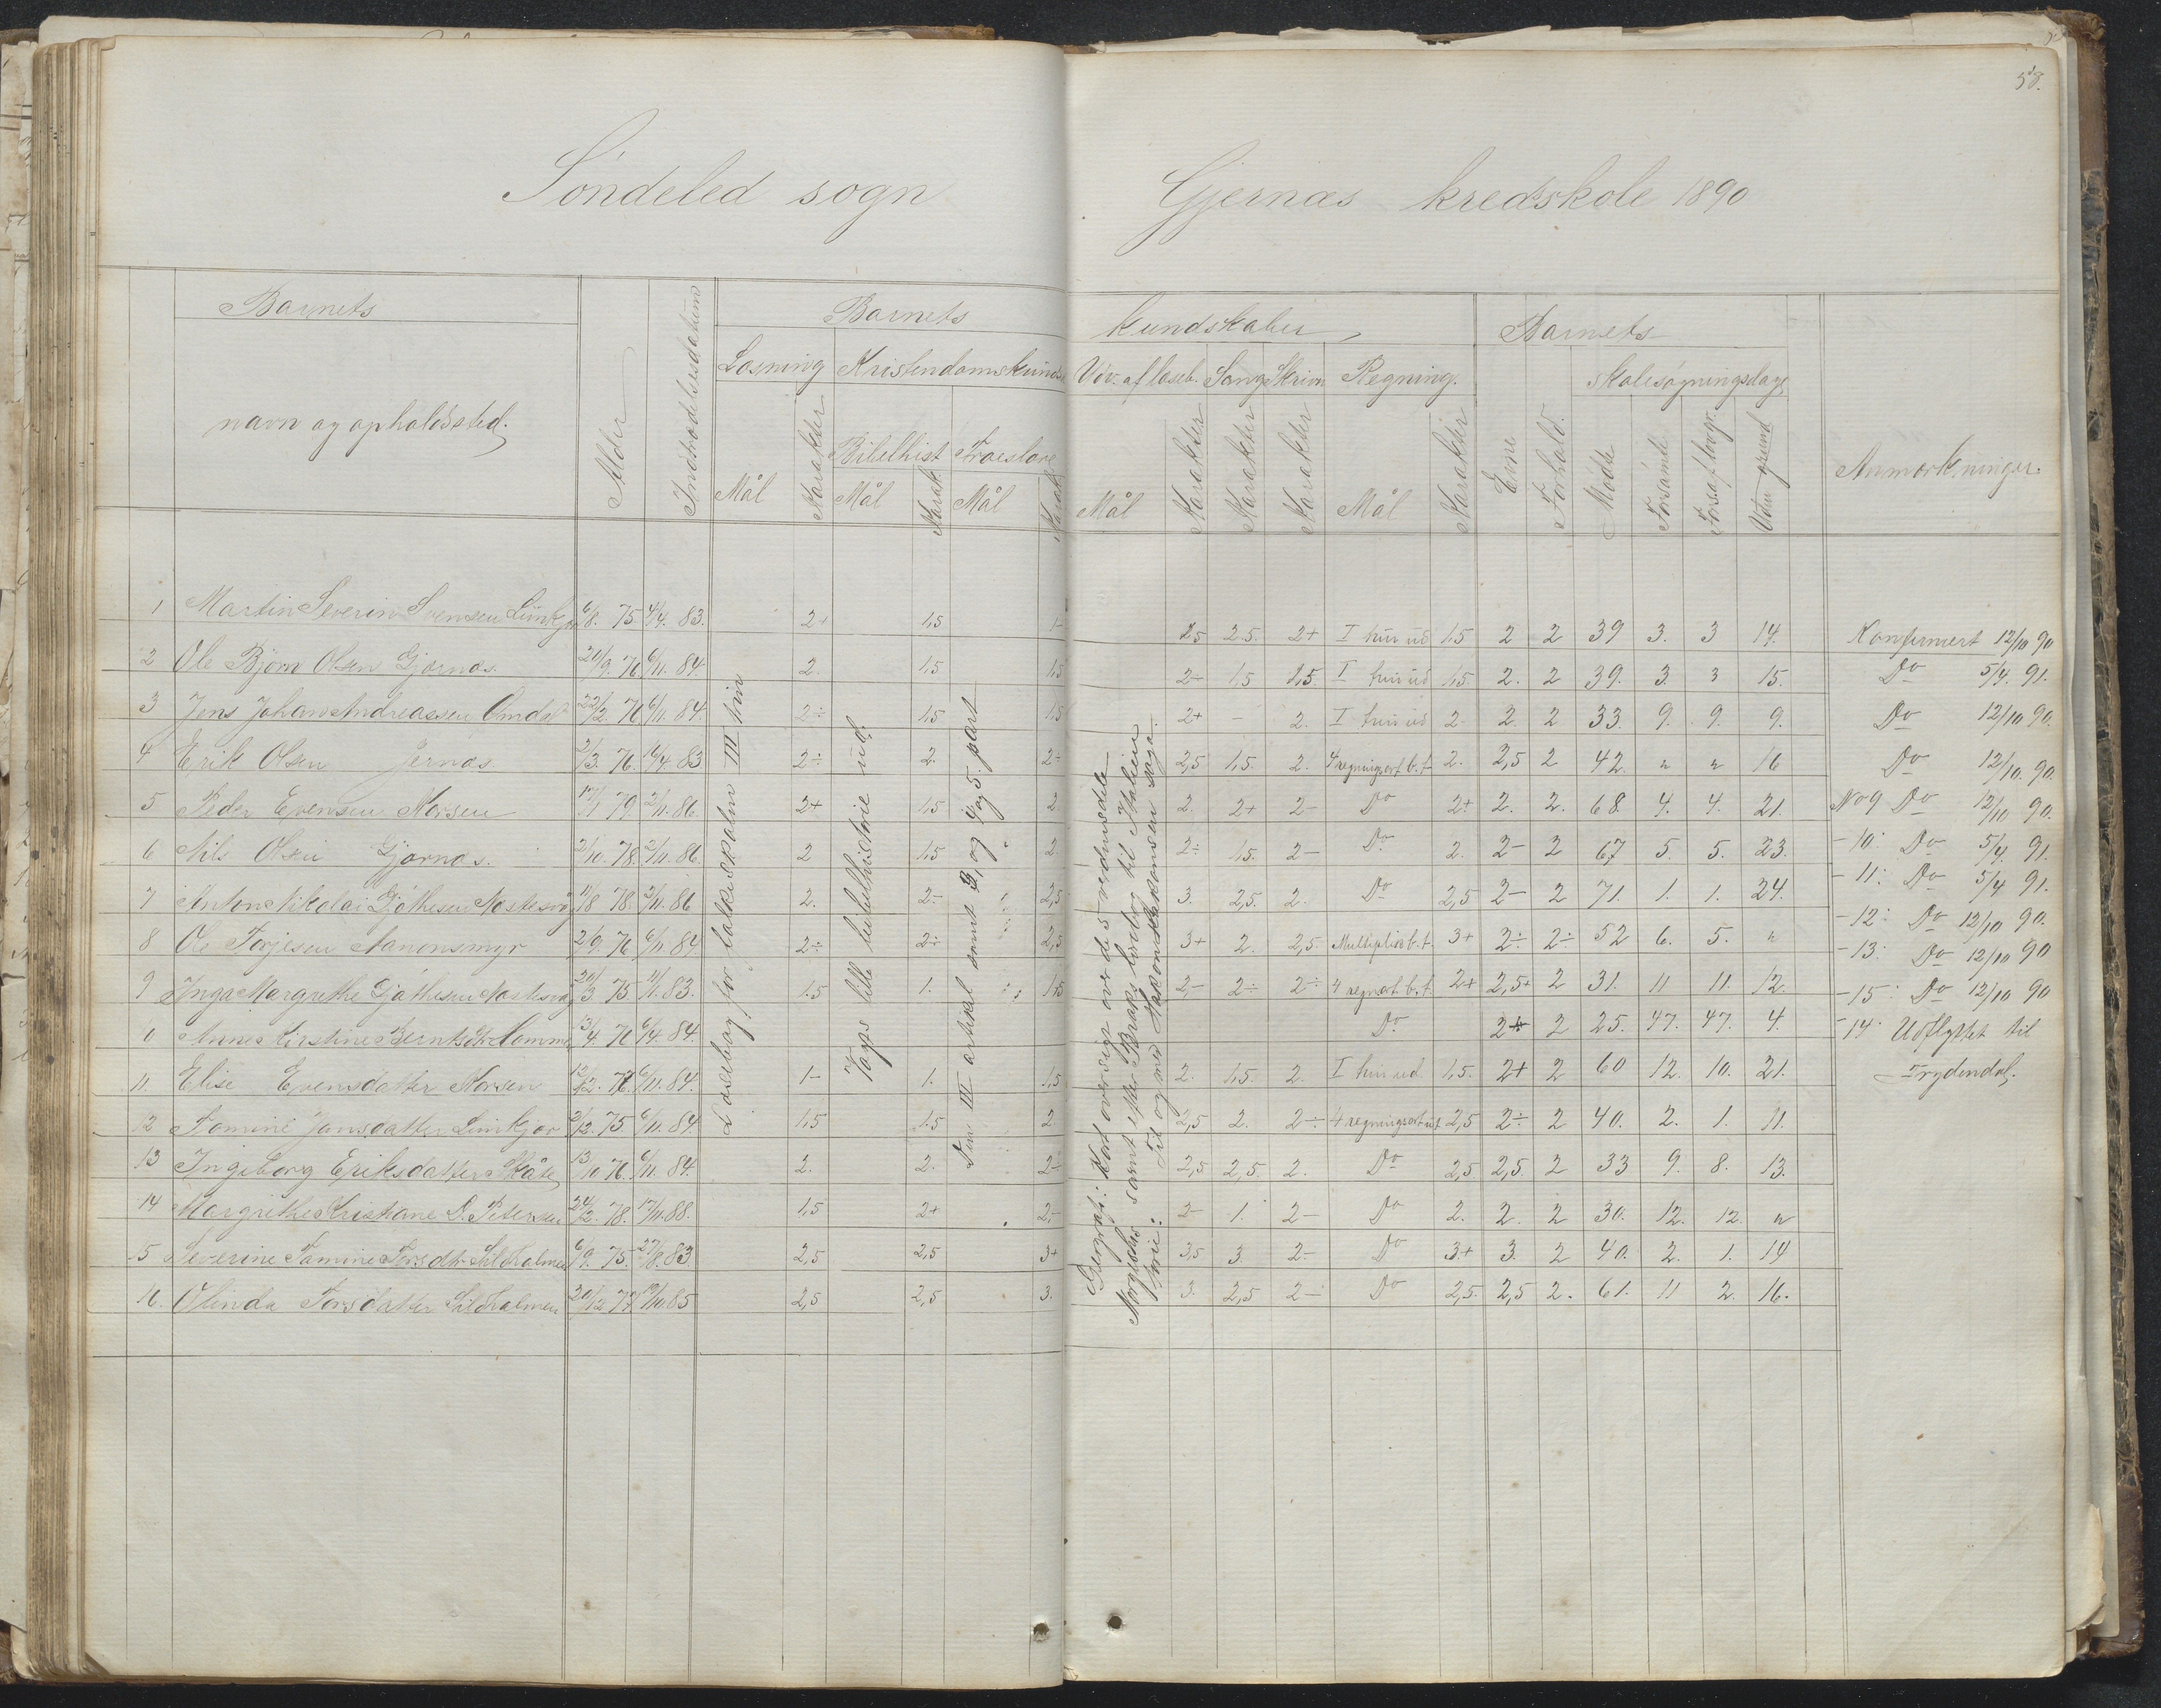 58.
Söndeled sogn Gjernæs kredsskole 1890
Barnets Barnets kundskaber Barnets
Læsning Kristendomskunds Udv. af læseb. Sang Skrivn Regning. Skolesøgningsdage
navn og opholdssted. Alder Indtrædelsesdatum Bibelhist Troeslære Evne Forhold. Mødte Forsømte Fors. af lovgr. Uden grund Anmærkninger.
Mål Karakter Mål Karak Mål Karak Mål Karakter Karakter Karakter Mål Karakter
Læsebog for folkeskolen III trin
Vogts lille bibelhistorie ud.
Den III artikel samt 4 og 5. part
Geografi: Kort oversigt over de 5 verdensdele
Norges
1 Martin Severin Svensen 6/8. 75 4/4. 83. 2+ 1,5 1- 2,5 2.5. 2+ I trin ud 1,5 2 2 39 3. 3 14. Konfirmert 12/10 90
2 Ole Bjorn Olsen Gjærnæs. 20/9. 76 6/11. 84. 2. 1,5 1,5 2- 1,5 1,5. I trin ud 1,5. 2. 2 39. 3. 3 15. Do 5/4. 91.
3 Jens Johan Andreassen 22/2. 76 6/11. 84. 2÷ 1,5 1,5 2+ - 2. I trin ud 2- 2. 2 33. 9. 9. 9. Do 12/10 90.
4 Erik Olsen Jernæs. 2/3. 76. 16/4. 83 2÷ 2. 2÷ 2,5 1,5. 2. 4 regningsart b.t 2. 2,5 2 42. " " 16 Do 12/10. 90.
5 Peder Evensen Narsen 17/1 79. 2/11. 86. 2+ 1,5 2. 2. 2+ 2- Do 2+ 2. 2. 68. 4. 4. 21. No 9 Do 12/10 90.
6 Nils Olsen Gjærnæs. 2/10. 78. 2/11. 86. 2 1,5 2. 2÷ 1,5. 2- Do 2. 2- 2 67 5. 5. 23. -10: Do 5/4. 91.
7 Anton Nikolai 11/8 78. 2/11. 86 2. 2- 2,5 3. 2,5. 2. Do 2,5 2- 2 71. 1. 1. 24. -11: Do 5/4 91.
8 Ole Tarjesen 2/9. 76 6/11. 84. 2÷ 2÷ 2,5 3+ 2. 2,5. b.t. 3+ 2÷ 2÷ 52 6. 5. " -12: Do 12/10 90.
9 Inga Margrethe 20/3 75. 11/11. 83. 1.5 1. 1,5 2,- 2÷ 2÷ 4 regnart. b.t. 2+ 2,5+ 2 31. 11 11. 12. -13: Do 12/10 90
0 Anne Kirstine 13/4. 76 6/4. 84. Do 2+ 2 25. 47. 47. 4. -15: Do 12/10 90
11 Elise Evensdatter Narsen 12/12. 76. 6/11. 84. 1- 1. 1,5 2. 1,5. 2. I trin ud. 1,5. 2+ 2 60 12. 10. 21. -14: Udflyttet til
12 Tomine Jensdatter 2/12. 75. 6/11. 84. 1,5 1.5 2 2,5 2. 2÷ 4 regningsart 2,5 2÷ 2 40. 2. 1. 11. Frydendal.
13 Ingeborg Eriksdatter 13/10 76. 6/11. 84. 2. 2. 2÷ 2,5 2,5. 2. Do 2,5 2,5. 2 33 9. 8. 13.
14 Margrethe Kristiane D. Petersen 24/2. 78. 17/11. 88. 1,5 2+ 2,- 2- 1. 2- Do 2. 2. 2 30. 12. 12. "
15 Severine Tomine Torsdtr. Sildholmen 6/9. 75. 27/8. 83. 2,5 2,5 3+ 3,5 3. 2- Do 3+ 3. 2 40. 2. 1. 14
16. Olinda Torsdatter Sildholmen 20/12. 77 19/10. 85 2,5 2,5 3. 3. 2,5 2- Do 2,5. 2,5 2. 61. 11 2. 16.